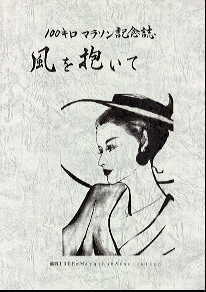 100キロマラソン記念誌
風を抱いて